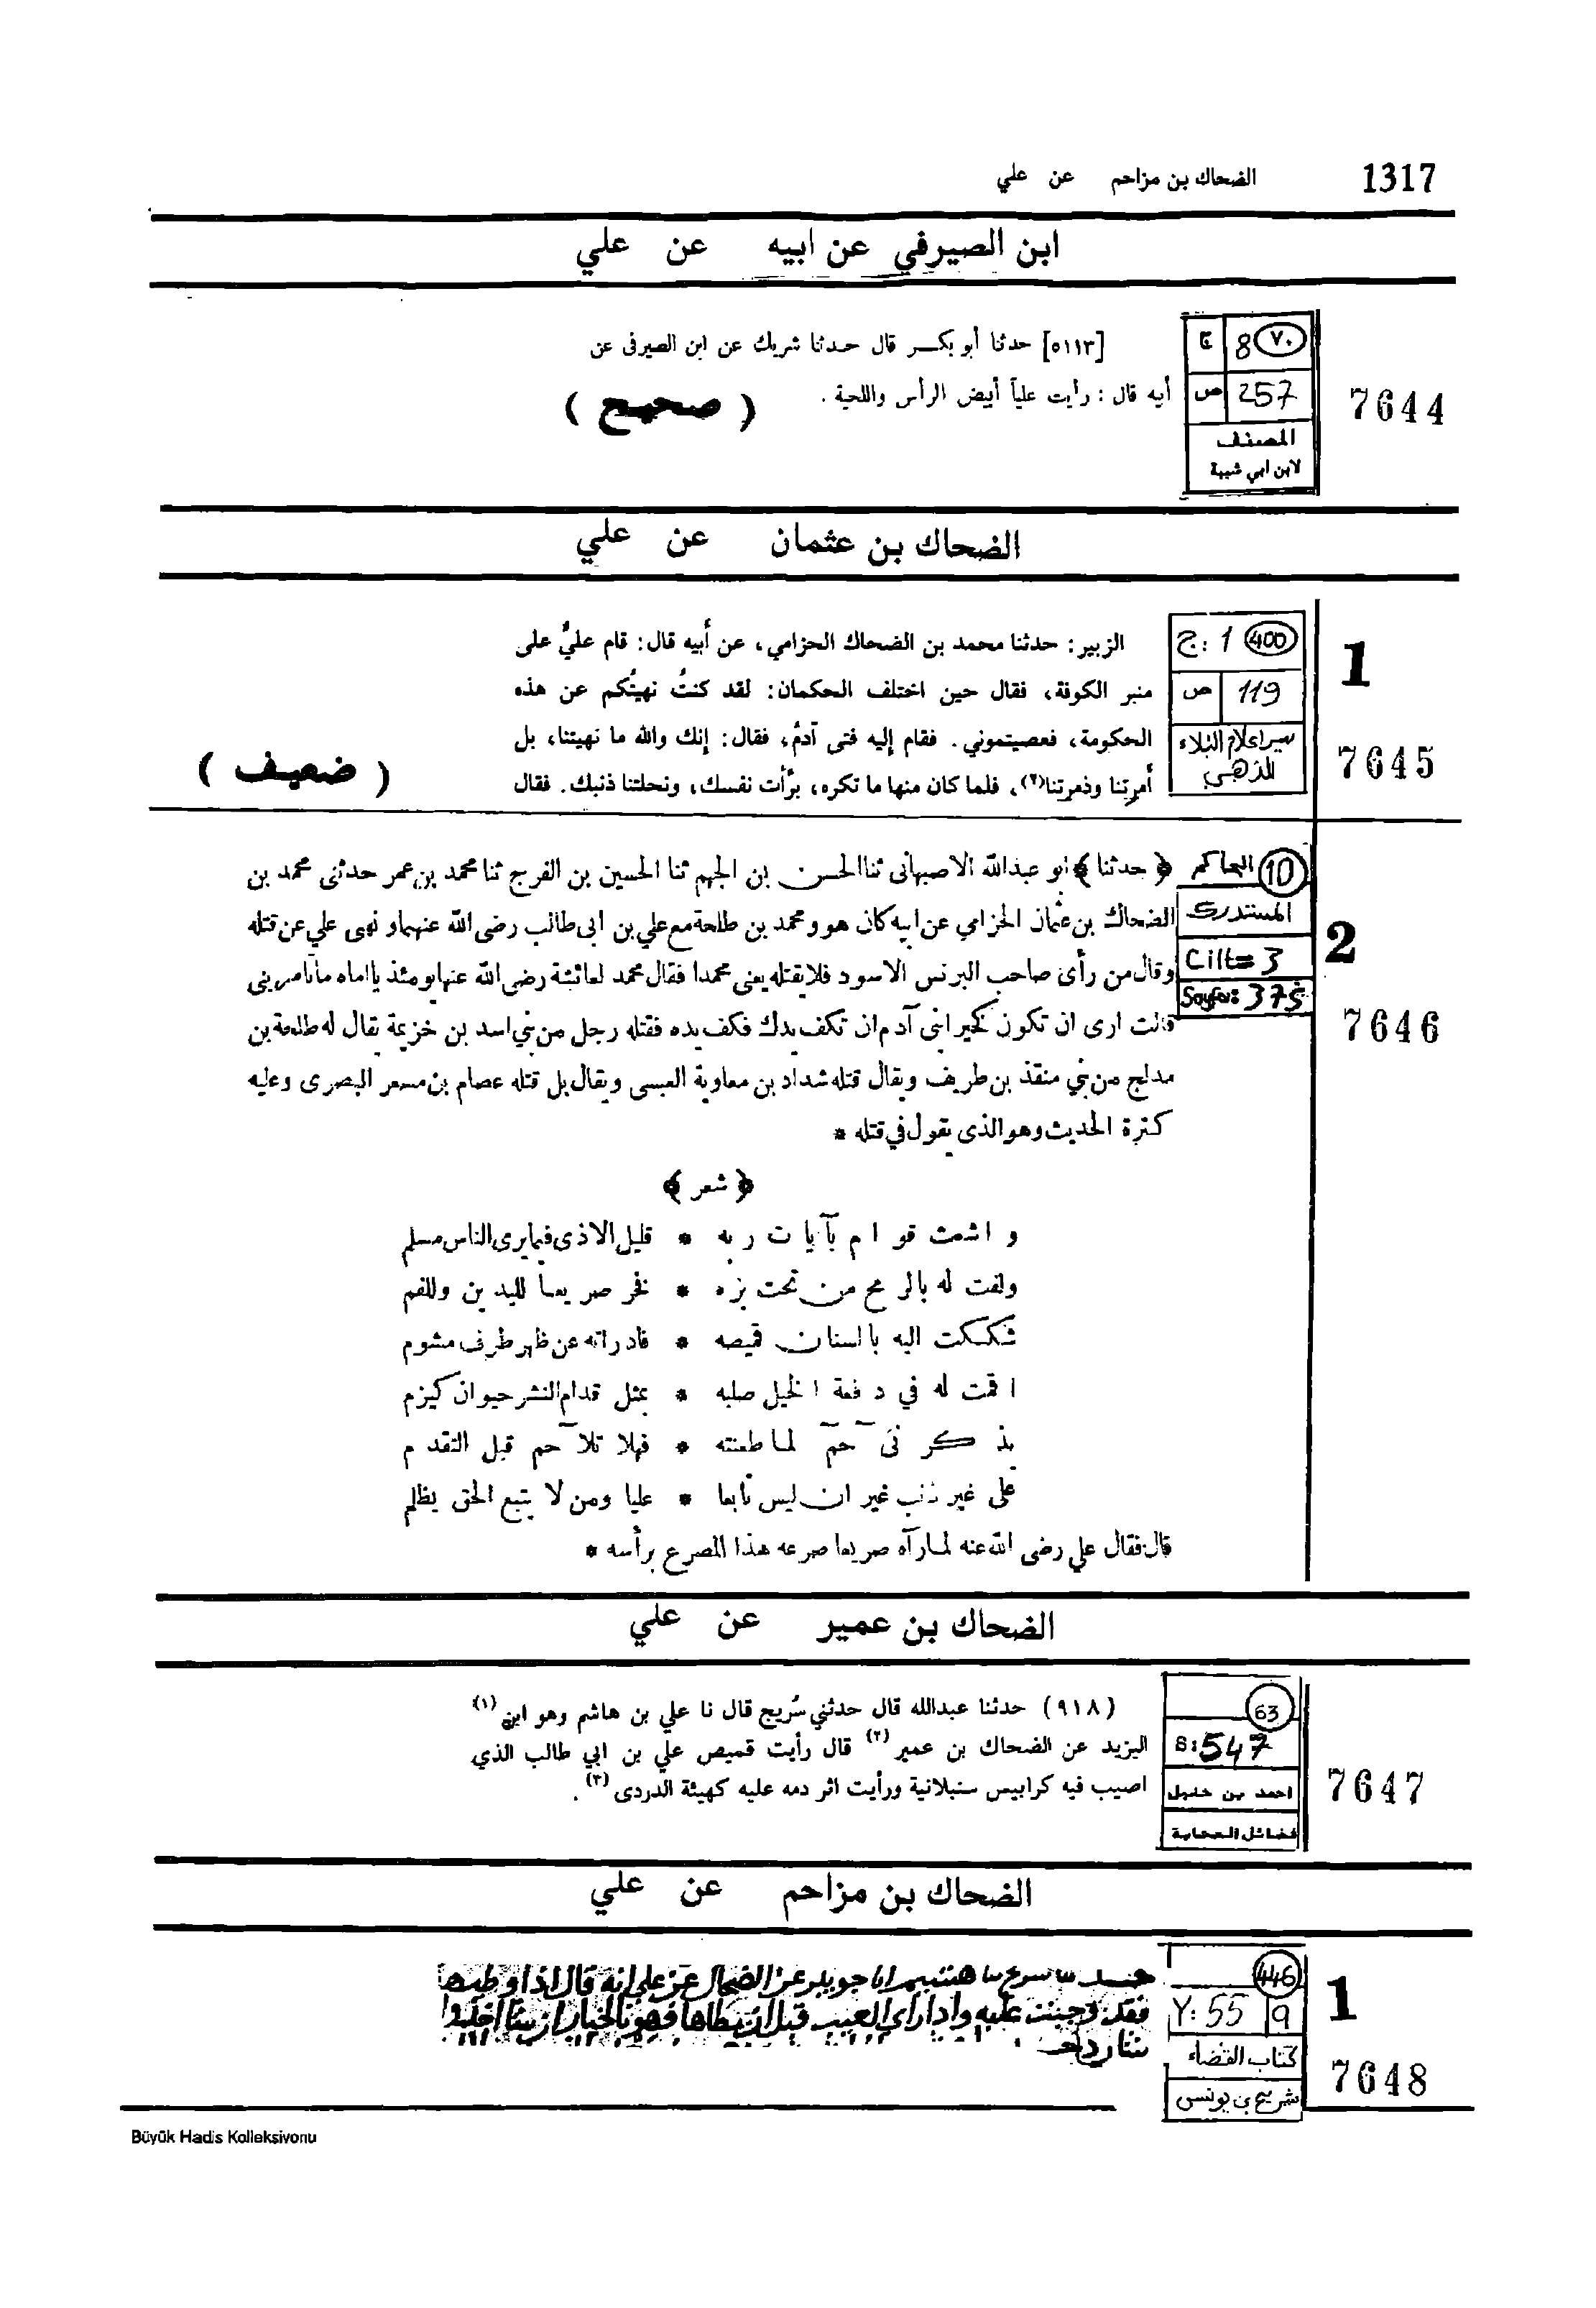 1317 الضحاك بن مزاحم عن علي
ابن الصيرفي عن ابيه عن علي
ج 8 ٧٠
[٥١١٣] حدثنا أبو بكر قال حدثنا شريك عن ابن الصيرفى عن
ص 257
أيه قال : رأيت علياً أبيض الرأس واللحية .
( صحيح )
7644
المصنف
لابن ابي شيبة
الضحاك بن عثمان عن علي
ج: 1 400
الزبير: حدثنا محمد بن الضحاك الحزامي، عن أبيه قال: قام عليٌّ على
1
ص 119
منبر الكوفة، فقال حين اختلف الحكمان: لقد كنتُ نهيتُكم عن هذه
سير اعلام النبلاء
الحكومة، فعصيتموني. فقام إليه فتى آدمُ، فقال: إنك والله ما نهيتنا، بل
للذهبي
أمرتنا وذمرتنا(٢)، فلما كان منها ما تكره، برَّأت نفسك، ونحلتنا ذنبك. فقال
( ضعيف )
7645
10 الحاكم
﴿ حدثنا ﴾ ابو عبدالله الاصبهانى ثنا الحسن بن الجهم ثنا الحسين بن الفرج ثنا محمد بن عمر حدثنى محمد بن
المستدرك
الضحاك بن عثمان الحزامي عن ابيه كان هو ومحمد بن طلحة مع علي بن ابى طالب رضى الله عنهما و نهى علي عن قتله
2
Cilt= 3
وقال من رأى صاحب البرنس الاسود فلا يقتله يعنى محمدا فقال محمد لعائشة رضى الله عنها يومئذ يا اماه ما تامرينى
Sayfa: 375
قالت ارى ان تكون كخير ابنى آدم ان تكف يدك فكف يده فقتله رجل من بني اسد بن خزيمة يقال له طلحة بن
7646
مدلج من بني منقذ بن طريف ويقال قتله شداد بن معاوية العبسى ويقال بل قتله عصام بن مسعر البصرى وعليه
كثرة الحديث وهو الذى يقول في قتله *
﴿ شعر ﴾
و اشعث قو ا م بآيا ت ر به * قليل الاذى فيما يرى الناس مسلم
ولفت له بالر مح من تحت بزه * فخر صر يعاً لليد ين وللفم
شككت اليه باالسنان قميصه * فادراته عن ظهر طرف مشوم
اقمت له في د فعة ا لخيل صلبه * بمثل قدام النشر حيوان كيزم
يذ كر نى حمٓ لما طعنته * فهلا تلا حم قبل التقد م
على غير ذنب غير ان ليس تابعا * عليا ومن لا يتبع الحق يظلم
قال فقال علي رضى الله عنه لمارآه صريعا صرعه هذا المصرع برأسه *
الضحاك بن عمير عن علي
63
(٩١٨) حدثنا عبدالله قال حدثني سُريج قال نا علي بن هاشم وهو ابن(١)
S: 547
اليزيد عن الضحاك بن عمير(٢) قال رأيت قميص علي بن ابي طالب الذي
احمد بن حنبل
اصيب فيه كرابيس سنبلانية ورأيت اثر دمه عليه كهيئة الدردى(٣) .
7647
فضائل الصحابة
الضحاك بن مزاحم عن علي
446
هشيم انا جويبر عن الضحاك عن علي انه قال اذا وطئها
1
Y: 55 9
فقد وجبت عليه واذا راى العيب قبل ان يطاها فهو بالخيار ان شا اخذ وا
كتاب القضاء
شا رد
7648
شريح بن يونس
Büyük Hadis Kolleksivonu